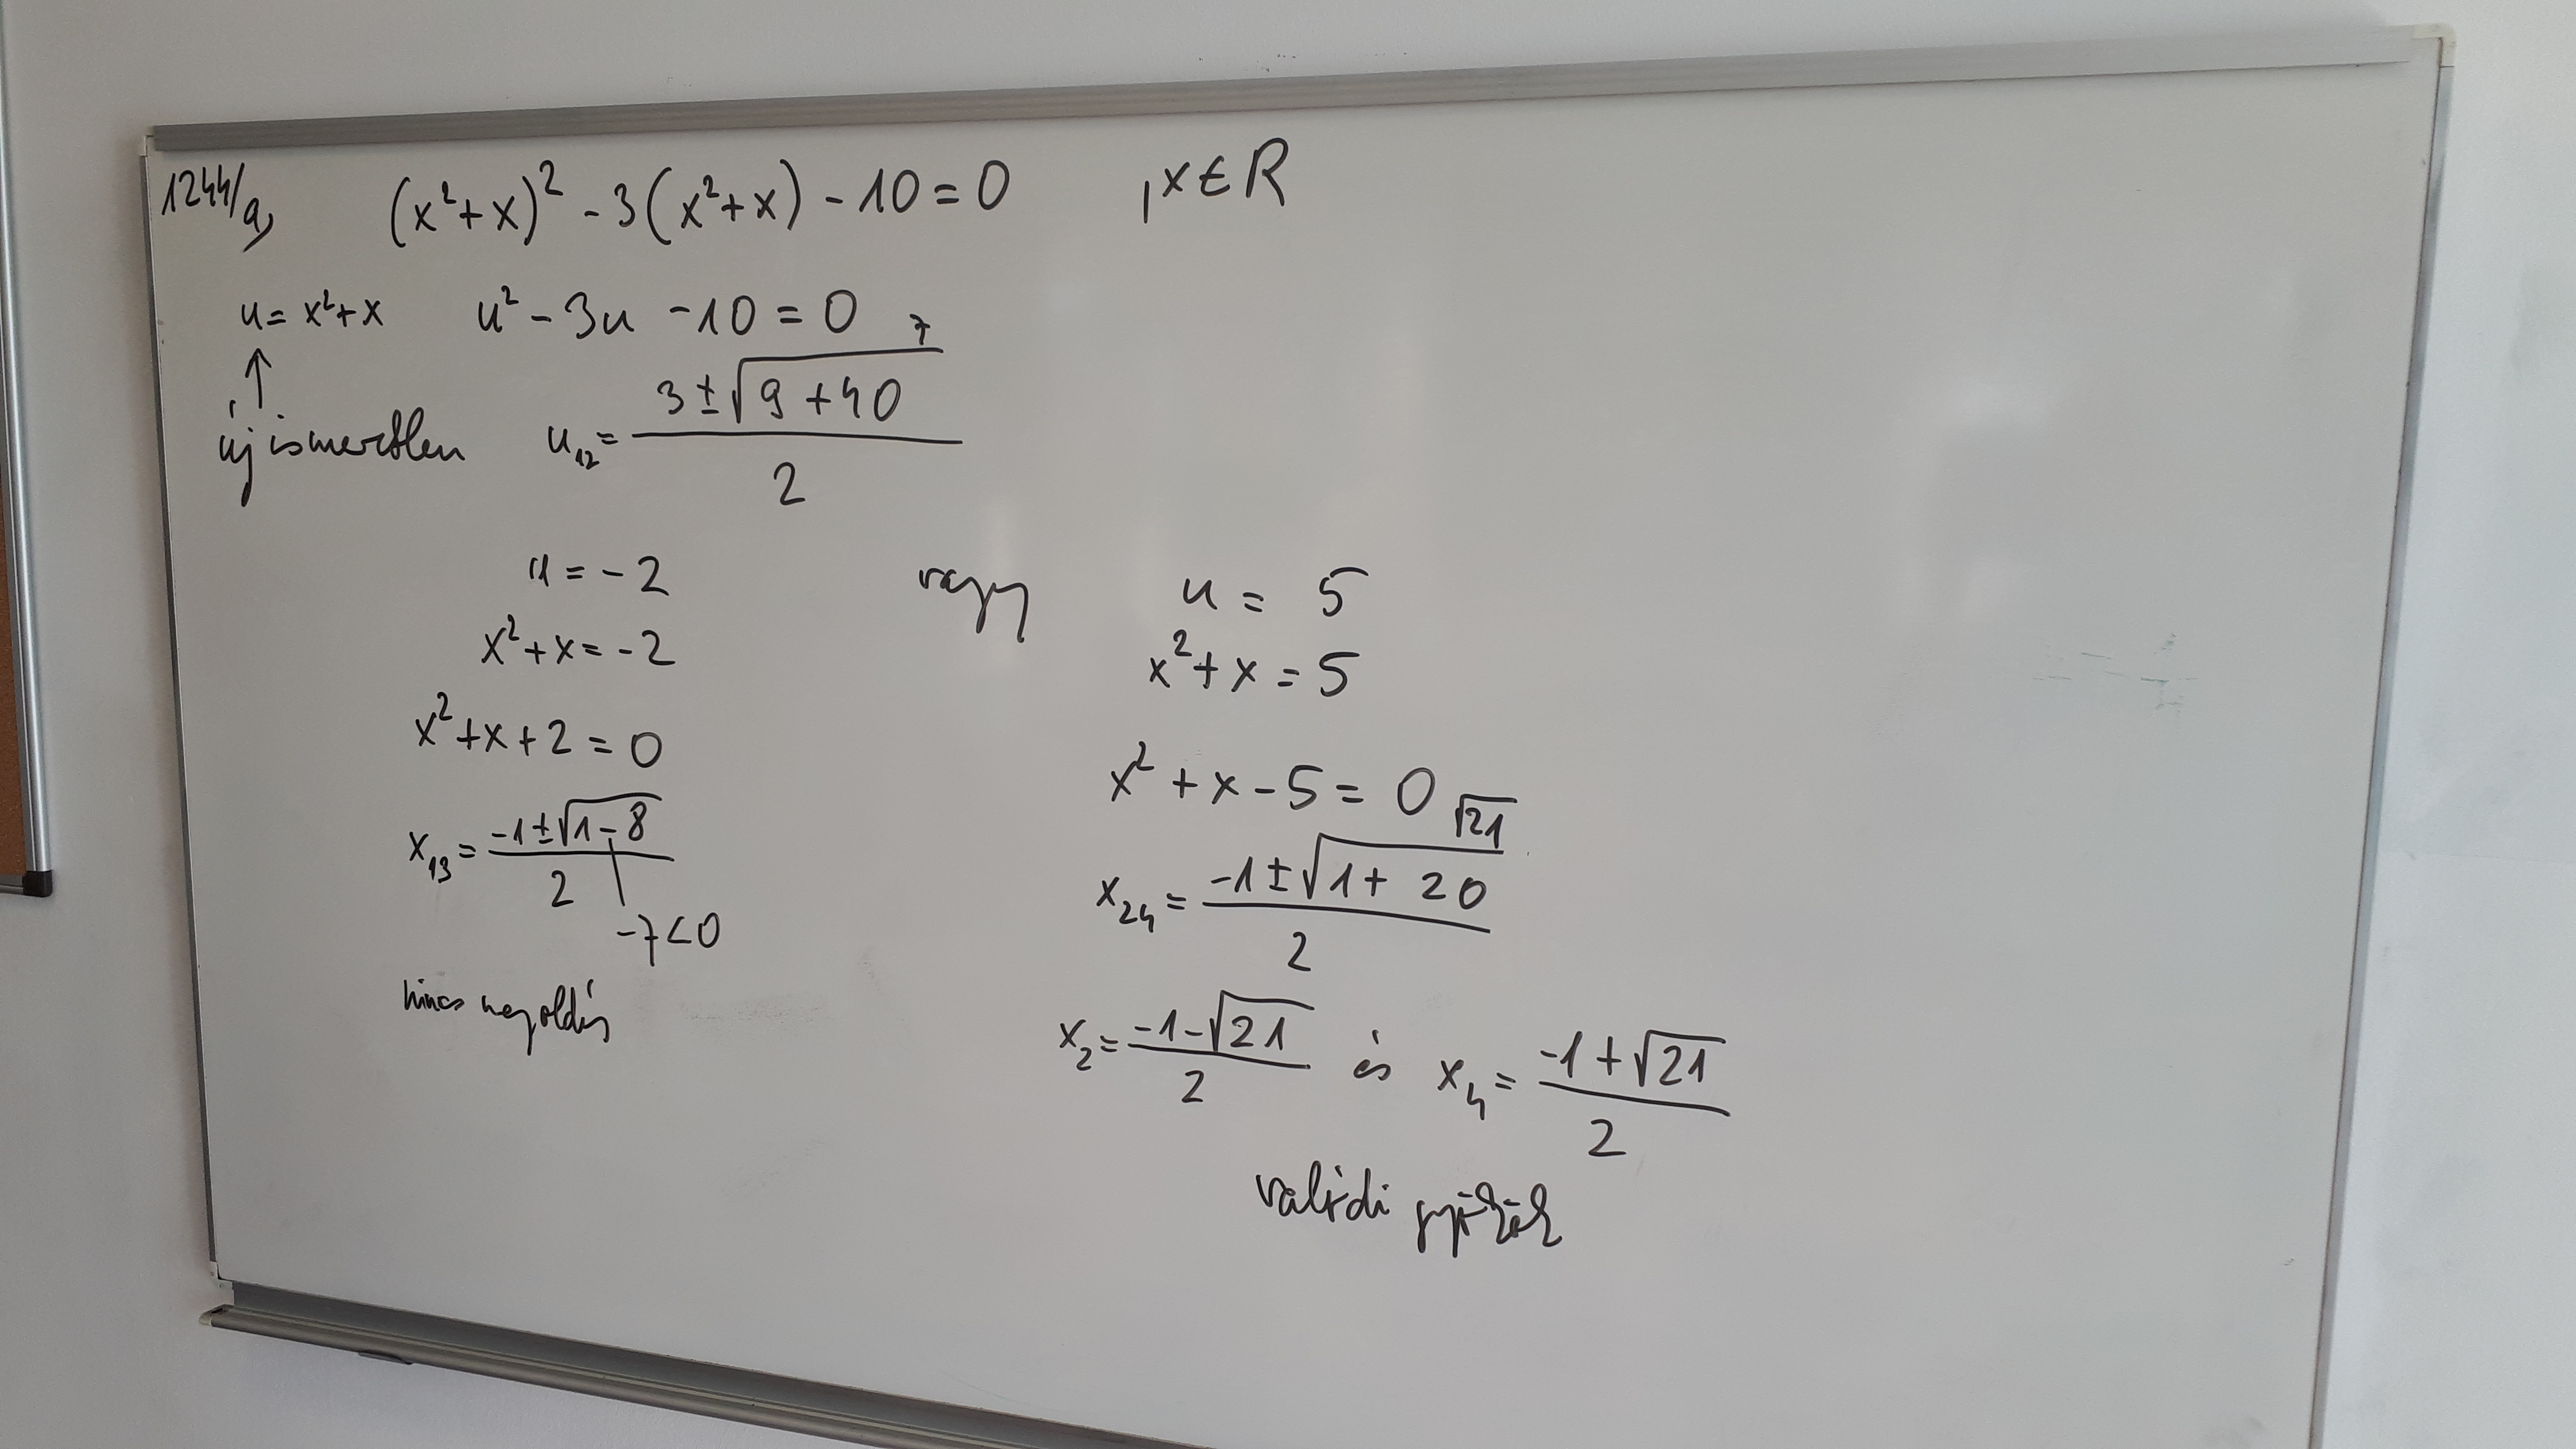 1244/a, (x²+x)² - 3(x²+x) - 10 = 0 , x ∈ R
u = x²+x u² - 3u - 10 = 0
↑
új ismeretlen u₁₂ = (3 ± √(9 + 40))/2 7
u = -2 vagy u = 5
x² + x = -2 x² + x = 5
x² + x + 2 = 0 x² + x - 5 = 0
x₁₃ = (-1 ± √(1 - 8))/2 x₂₄ = (-1 ± √(1 + 20))/2 √21
-7 < 0
nincs megoldás x₂ = (-1 - √21)/2 és x₄ = (-1 + √21)/2
valódi gyökök